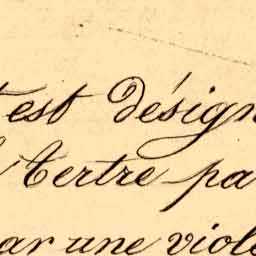 est désign
Tertre pa
ar une viole